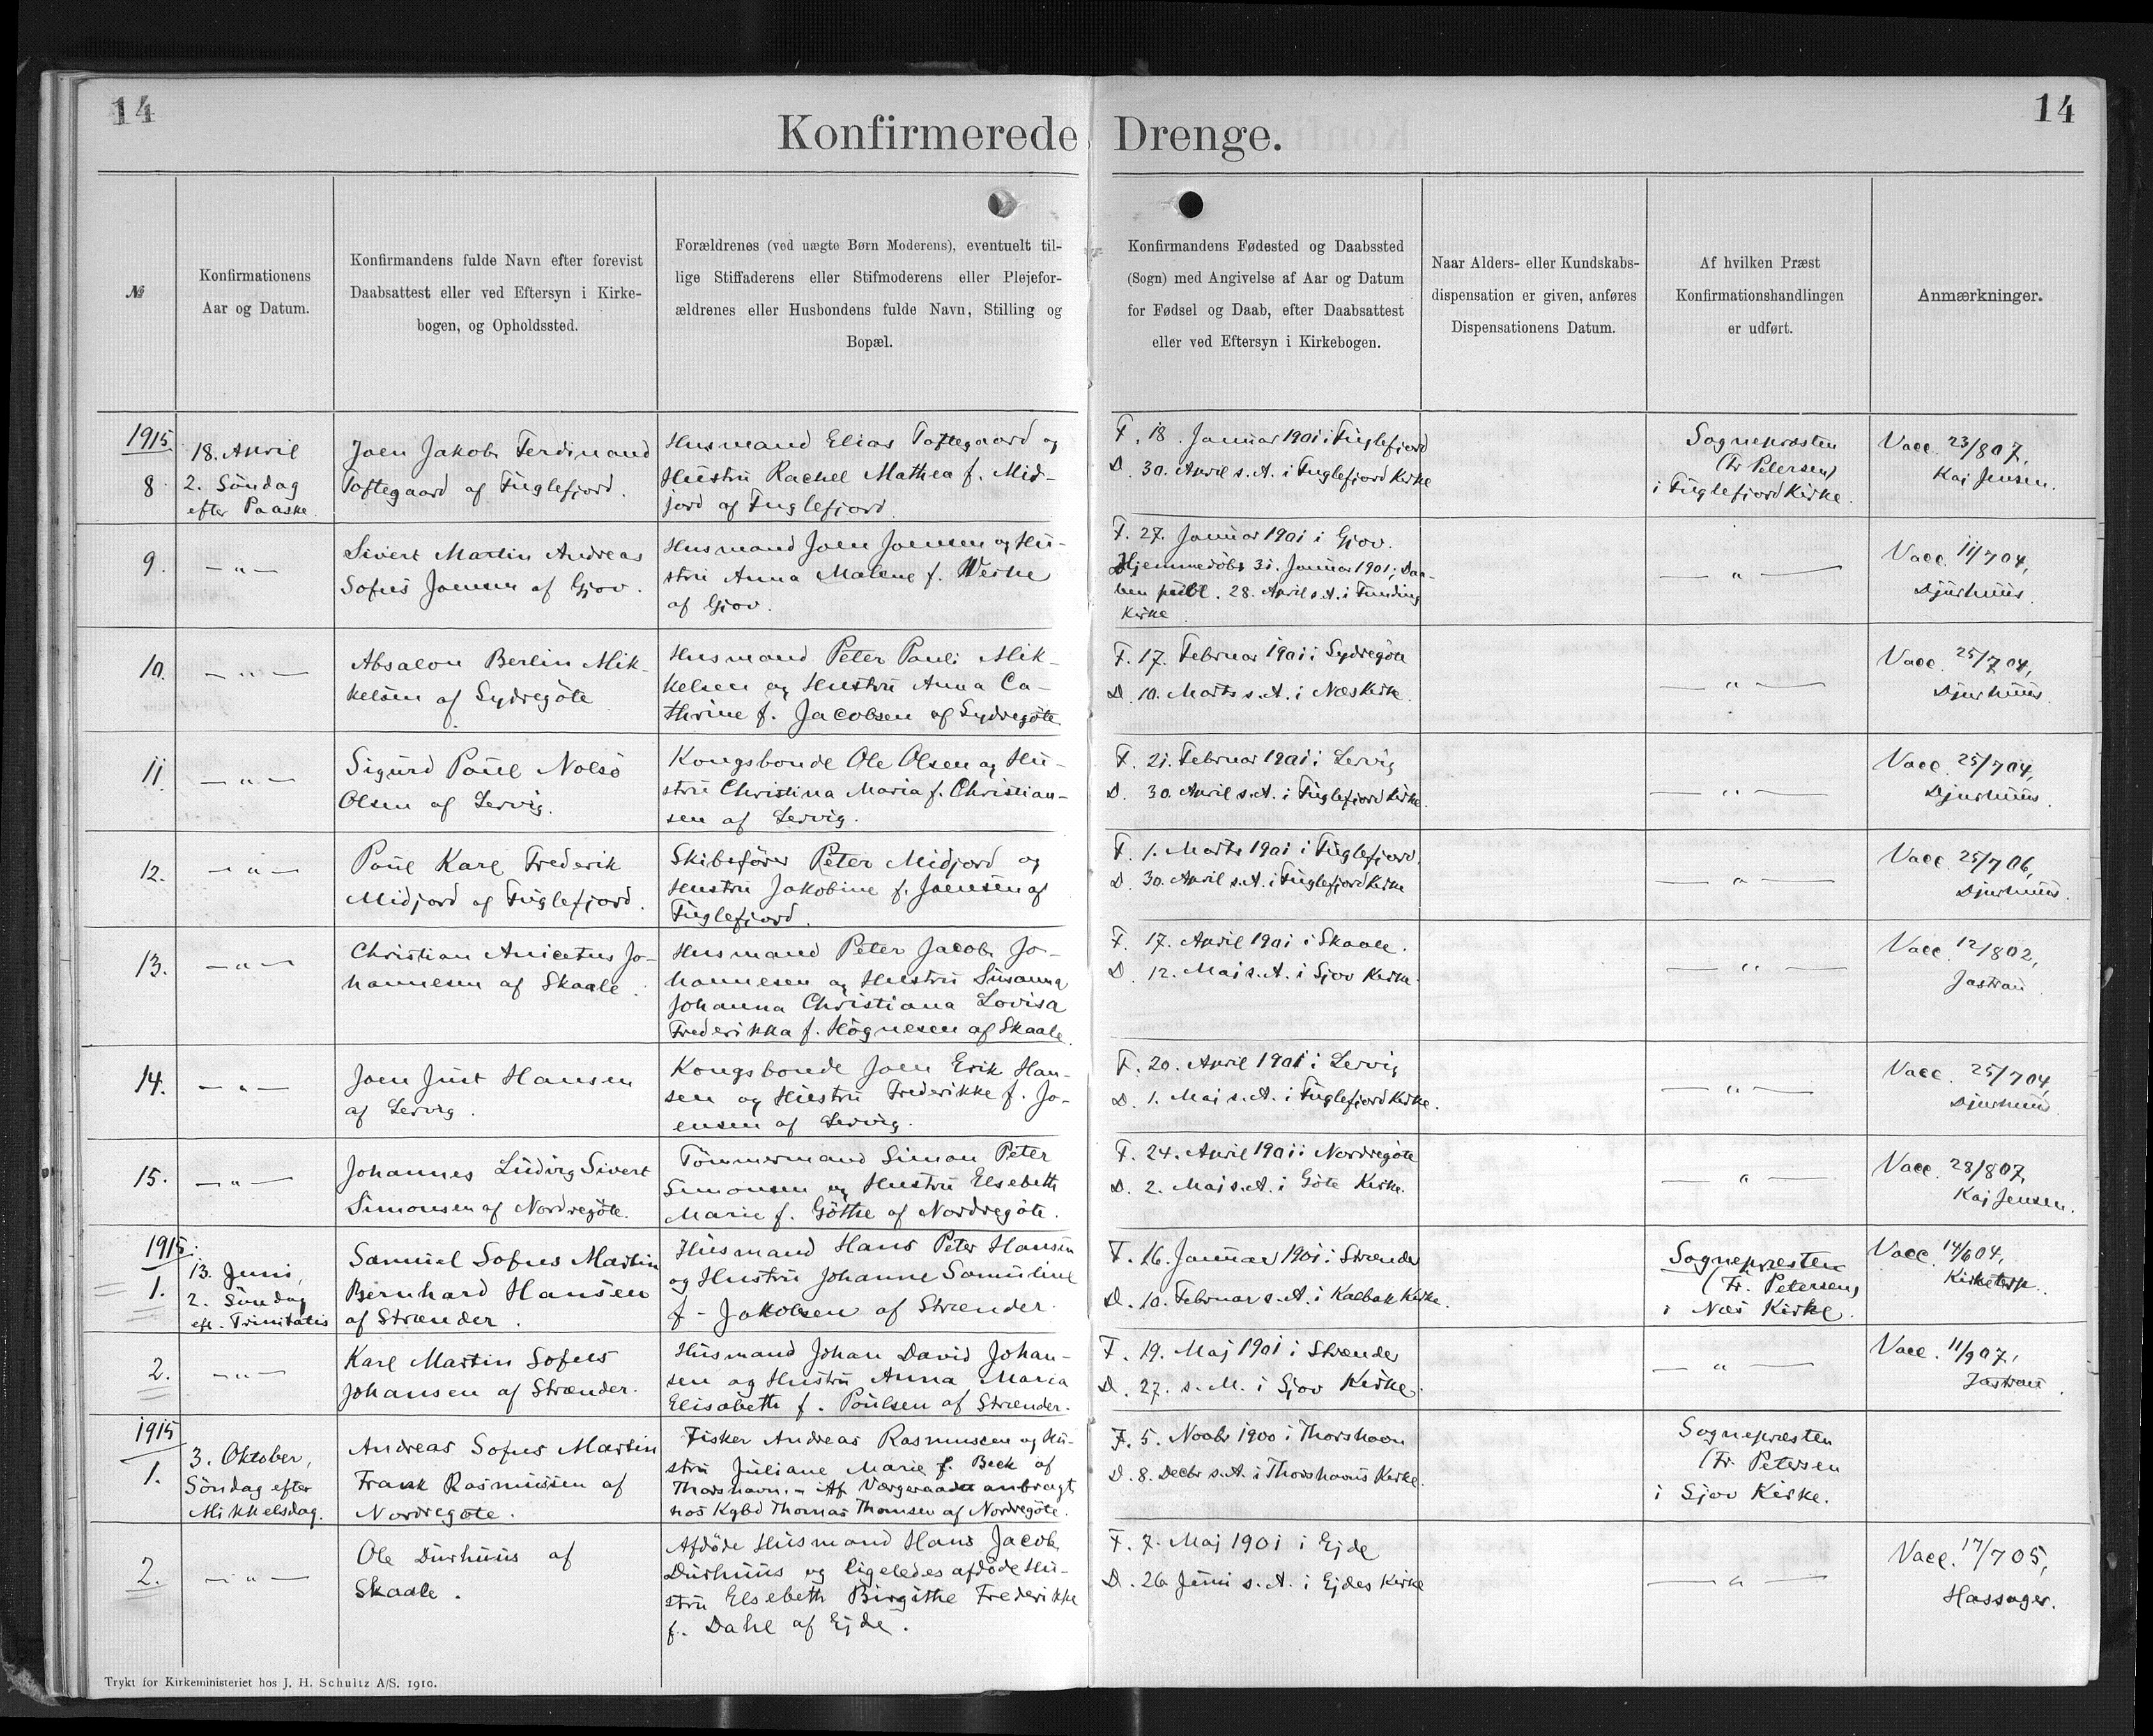 14
14
Konfirmerede Drenge.
№
Konfirmationens
Aar og Datum.
Konfirmandens fulde Navn efter forevist
Daabsattest eller ved Eftersyn i Kirke-
bogen, og Opholdssted.
Forældrenes (ved uægte Børn Moderens), eventuelt til-
lige Stiffaderens eller Stifmoderens eller Plejefor-
ældrenes eller Husbondens fulde Navn, Stilling og
Bopæl.
Konfirmandens Fødested og Daabssted
(Sogn) med Angivelse af Aar og Datum
for Fødsel og Daab, efter Daabsattest
eller ved Eftersyn i Kirkebogen.
Naar Alders- eller Kundskabs-
dispensation er given, anføres
Dispensationens Datum.
Af hvilken Præst
Konfirmationshandlingen
er udført.
Anmærkninger.
1915
8
18. April
2. Söndag
efter Paaske.
Joen Jakob Ferdinand
Toftegaard af Fuglefjord.
Husmand Elias Toftegaard og
Hustru Rachel Mathea f. Mid-
jord af Fuglefjord.
F. 18. Januar 1901 i Fuglefjord
D. 30. April s. A. i Fuglefjord Kirke
Sognepræsten
(Fr. Petersen)
i Fuglefjord Kirke.
Vacc. 23/8 07,
Kaj Jensen.
9.
— " —
Sivert Martin Andreas
Sofus Joensen af Gjov.
Husmand Joen Joensen og Hu-
stru Anna Malene f. Weihe
af Gjov.
F. 27. Januar 1901 i Gjov.
Hjemmedöbt 31. Januar 1901; Daa-
ben publ. 28. April s. A. i Funding
Kirke.
— " —
Vacc. 11/7 04,
Djurhuus.
10.
— " —
Absalon Berlin Mik-
kelsen af Sydregöte
Husmand Peter Pauli Mik-
kelsen og Hustru Anna Ca-
thrine f. Jacobsen af Sydregöte
F. 17. Februar 1901 i Sydregöte
D. 10. Marts s. A. i Næs Kirke.
— " —
Vacc. 25/7 04,
Djurhuus.
11.
— " —
Sigurd Poul Nolsö
Olsen af Lervig.
Kongsbonde Ole Olsen og Hu-
stru Christina Maria f. Christian-
sen af Lervig.
F. 21. Februar 1901 i Lervig
D. 30. April s. A. i Fuglefjord Kirke.
— " —
Vacc. 25/7 04,
Djurhuus.
12.
— " —
Poul Karl Frederik
Midjord af Fuglefjord.
Skibsförer Peter Midjord og
Hustru Jakobine f. Joensen af
Fuglefjord.
F. 1. Marts 1901 i Fuglefjord.
D. 30. April s. A. i Fuglefjord Kirke
— " —
Vacc. 25/7 06,
Djurhuus.
13.
— " —
Christian Anicetus Jo-
hannesen af Skaale.
Husmand Peter Jacob Jo-
hannesen og Hustru Susanna
Johanna Christiana Lovisa
Frederikka f. Högnesen af Skaale.
F. 17. April 1901 i Skaale.
D. 12. Maj s. A. i Sjov Kirke.
— " —
Vacc. 12/8 02,
Jastrau
14.
— " —
Joen Just Hansen
af Lervig.
Kongsbonde Joen Erik Han-
sen og Hustru Frederikke f. Jo-
ensen af Lervig.
F. 20. April 1901 i Lervig
D. 1. Maj s. A. i Fuglefjord Kirke.
— " —
Vacc. 25/7 04,
Djurhuus
15.
— " —
Johannes Ludvig Sivert
Simonsen af Nordregöte.
Tömmermand Simon Peter
Simonsen og Hustru Elsebeth
Marie f. Göthe af Nordregöte.
F. 24. April 1901 i Nordregöte
D. 2. Maj s. A. i Göte Kirke.
— " —
Vacc. 28/8 07,
Kaj Jensen.
1915.
1.
13. Juni,
2. Söndag
eft. Trinitatis
Samuel Sofus Martin
Bernhard Hansen
af Strænder.
Husmand Hans Peter Hansen
og Hustru Johanne Samuline
f. Jakobsen af Strænder.
F. 16. Januar 1901 i Strænder
D. 10. Februar s. A. i Kalbak Kirke.
Sognepræsten
(Fr. Petersen)
i Næs Kirke.
Vacc. 14/6 04,
Kirketerp.
2.
— " —
Karl Martin Sofus
Johansen af Strænder.
Husmand Johan David Johan-
sen og Hustru Anna Maria
Elisabeth f. Poulsen af Strænder.
F. 19. Maj 1901 i Strænder
D. 27. s. M. i Sjov Kirke.
— " —
Vacc. 11/9 07,
Jastrau.
1915
1.
3. Oktober,
Söndag efter
Mikkelsdag.
Andreas Sofus Martin
Frank Rasmussen af
Nordregöte.
Fisker Andreas Rasmussen og Hu-
stru Juliane Marie f. Beck af
Thorshavn. - Af Værgeraadet anbragt
hos Kgbd Thomas Thomsen af Nordregöte.
F. 5. Novbr 1900 i Thorshavn
D. 8. Decbr s. A. i Thorshavns Kirke.
Sognepræsten
(Fr. Petersen
i Sjov Kirke.
2.
— " —
Ole Durhuus af
Skaale.
Afdöde Husmand Hans Jacob
Durhuus og ligeledes afdöde Hu-
stru Elsebeth Birgithe Frederikke
f. Dahl af Ejde.
F. 7. Maj 1901 i Ejde
D. 26 Juni s. A. i Ejdes Kirke
— " —
Vacc. 17/7 05,
Hassager.
Trykt for Kirkeministeriet hos J. H. Schultz A/S. 1910.